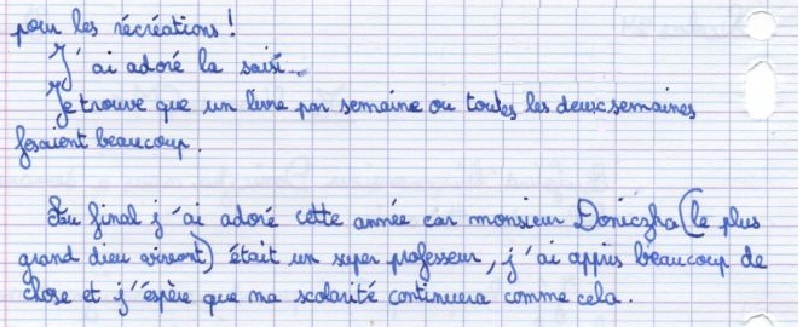 pour les récréations !
J'ai adoré la saisi...
Je trouve que un livre par semaine ou toutes les deux semaines
fesaient beaucoup.
Au final j'ai adoré cette année car monsieur Doniczka (le plus
grand dieu vivant) était un super professeur, j'ai appris beaucoup de
chose et j'éspère que ma scolarité continuera comme cela.